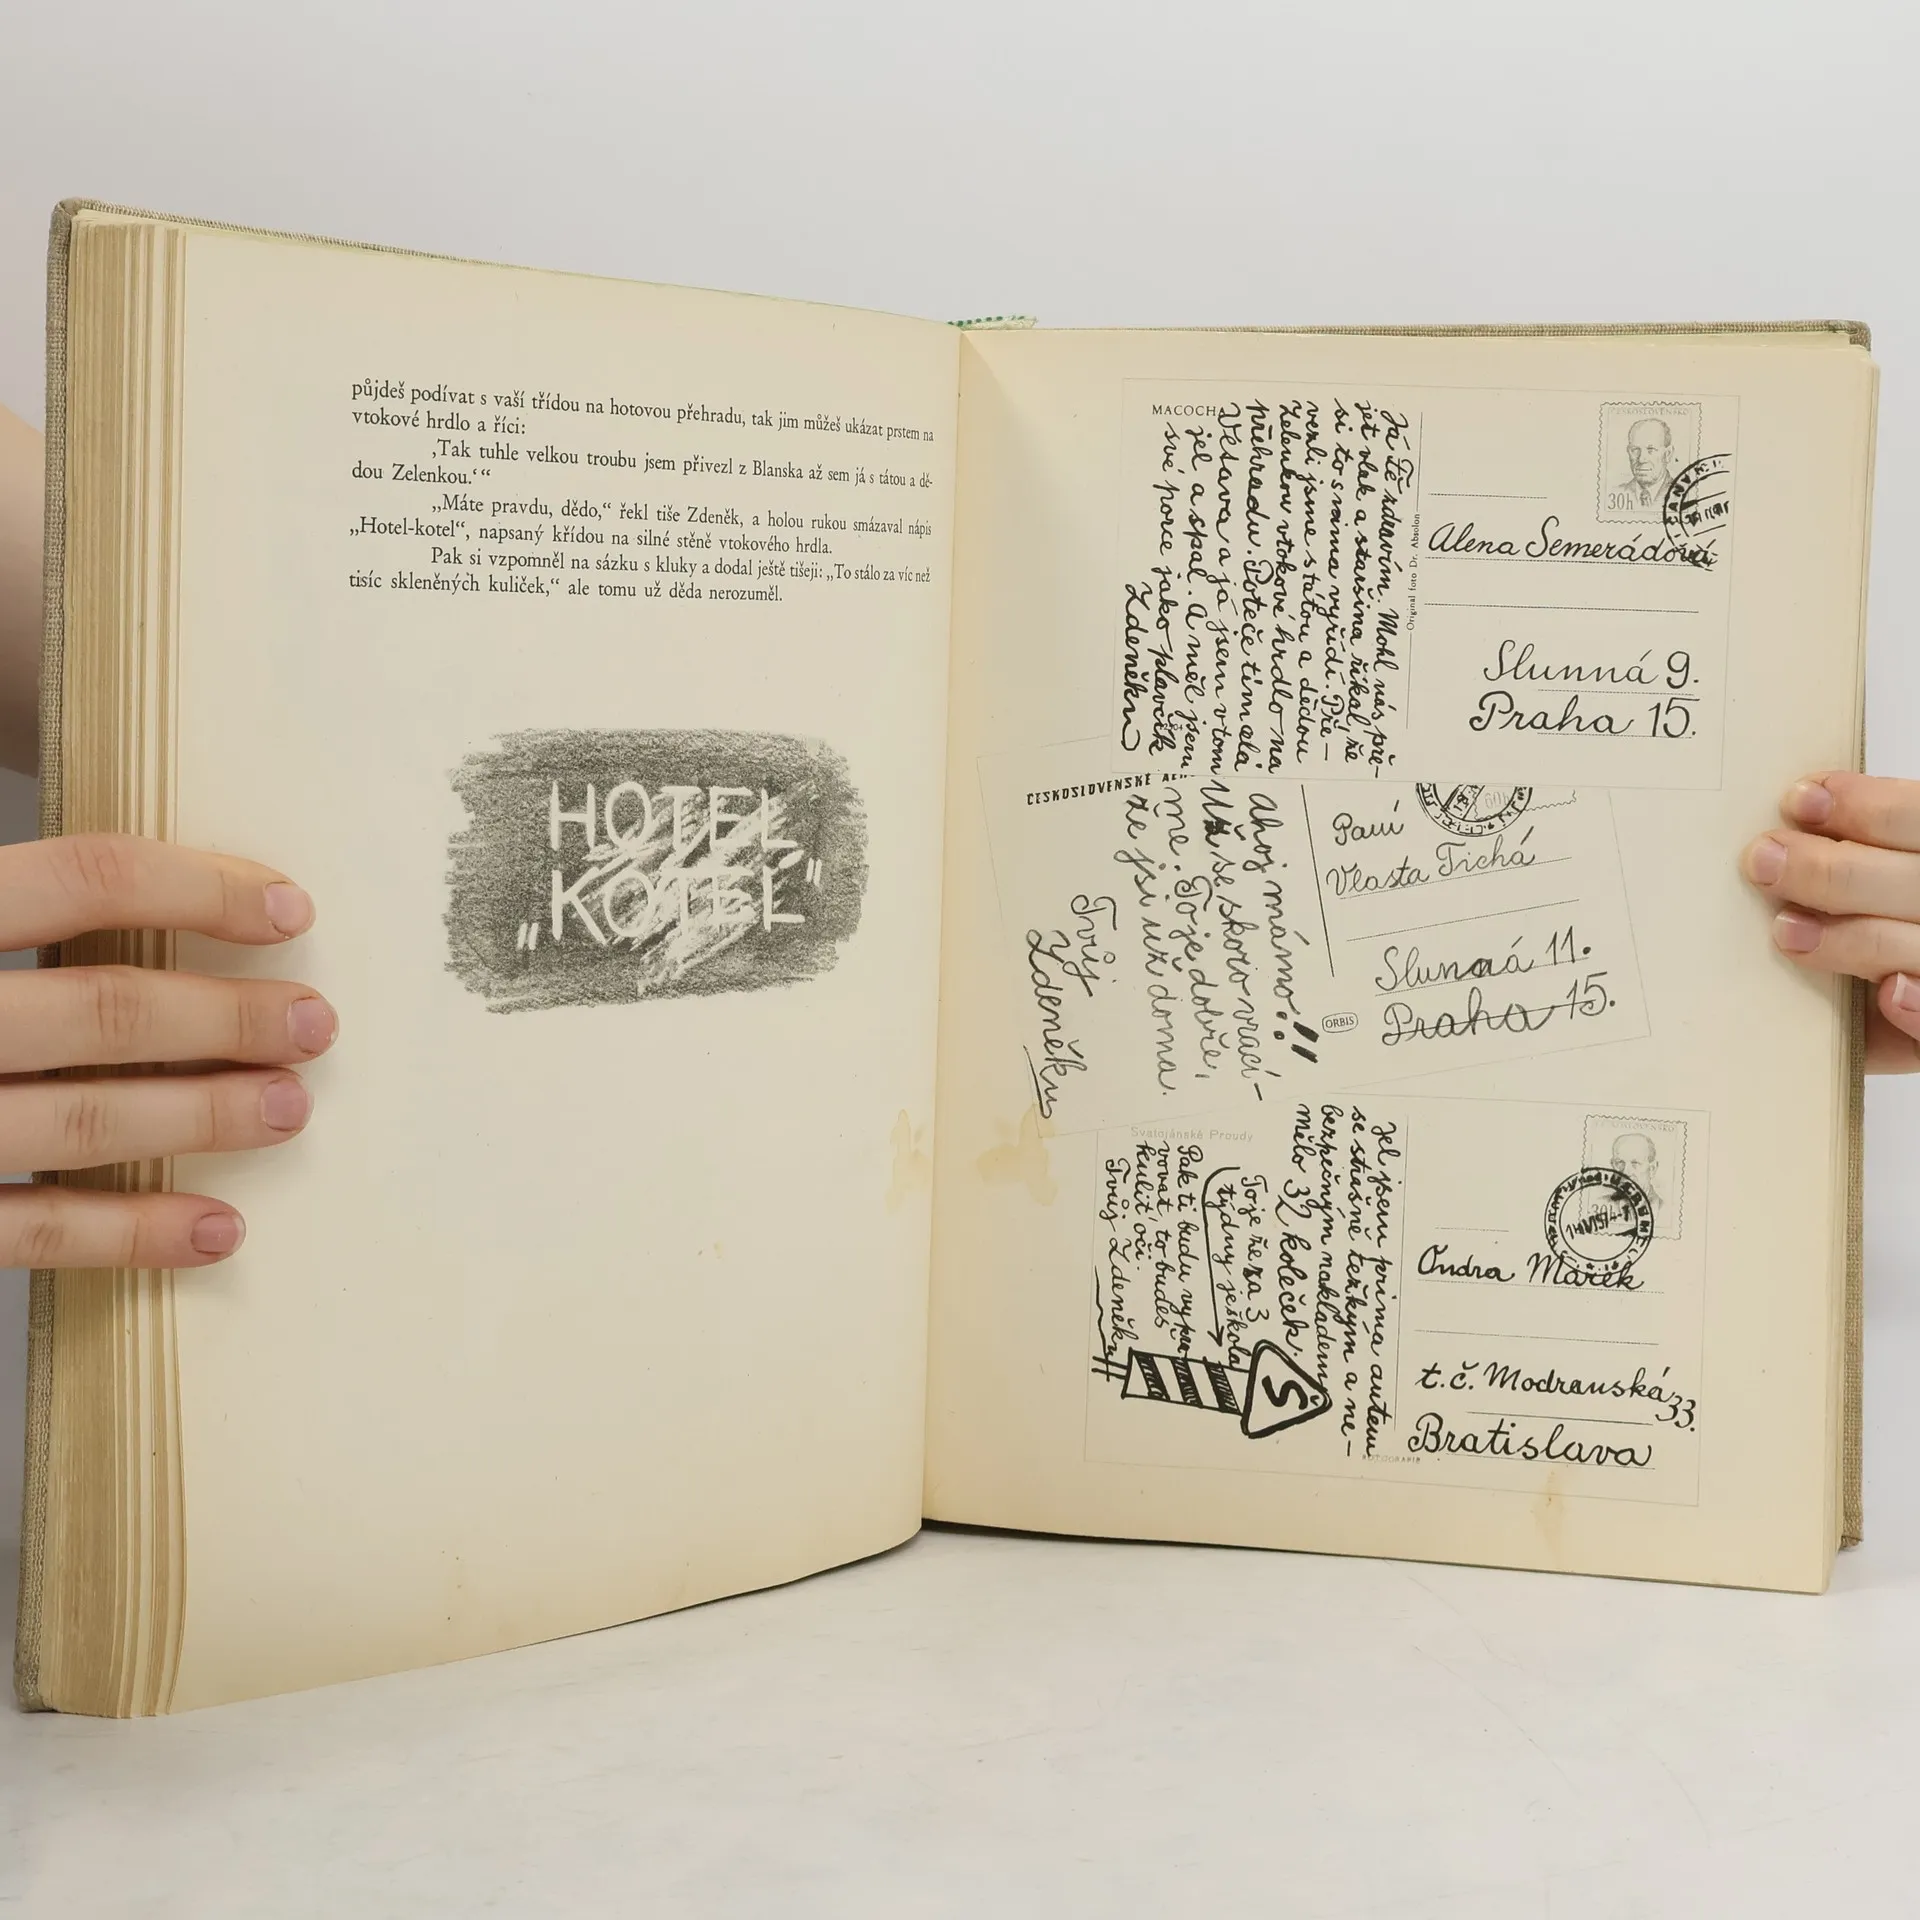 půjdeš podívat s vaší třídou na hotovou přehradu, tak jim můžeš ukázat prstem na
vtokové hrdlo a říci:
‚Tak tuhle velkou troubu jsem přivezl z Blanska až sem já s tátou a dě-
dou Zelenkou.‘“
„Máte pravdu, dědo,“ řekl tiše Zdeněk, a holou rukou smázaval nápis
„Hotel-kotel“, napsaný křídou na silné stěně vtokového hrdla.
Pak si vzpomněl na sázku s kluky a dodal ještě tišeji: „To stálo za víc než
tisíc skleněných kuliček,“ ale tomu už děda nerozuměl.
HOTEL
„KOTEL“
MACOCH
Já Tě zdravím. Mohl nás pře-
jet vlak a staršina říkal, že
si to s náma vyřídí. Pře-
vezli jsme s tátou a dědou
Zelenkou vtokové hrdlo na
přehradu. Poteče tím celá
Vltava a já jsem v tom
jel a spal. A měl jsem
své porce jako plavčík
Zdeněk
Original foto Dr. Absolon
ČESKOSLOVENSKO
30h
Alena Semerádová
Slunná 9.
Praha 15.
ČESKOSLOVENSKÉ
Ahoj mámo!!
Už se skoro vrací-
me. To je dobře,
že jsi už doma.
Tvůj
Zdeněk
60h
Paní
Vlasta Tichá
Slunná 11.
Praha 15.
ORBIS
Svatojánské Proudy
Jel jsem prima autem
se strašně těžkým a ne-
bezpečným nákladem
mělo 32 koleček.
To je že za 3
týdny je škola
Pak ti budu vyprá
vovat, to budeš
kulit oči.
Tvůj Zdeněk
S
ČESKOSLOVENSKO
30h
Ondra Marek
t.č. Modranská 33.
Bratislava